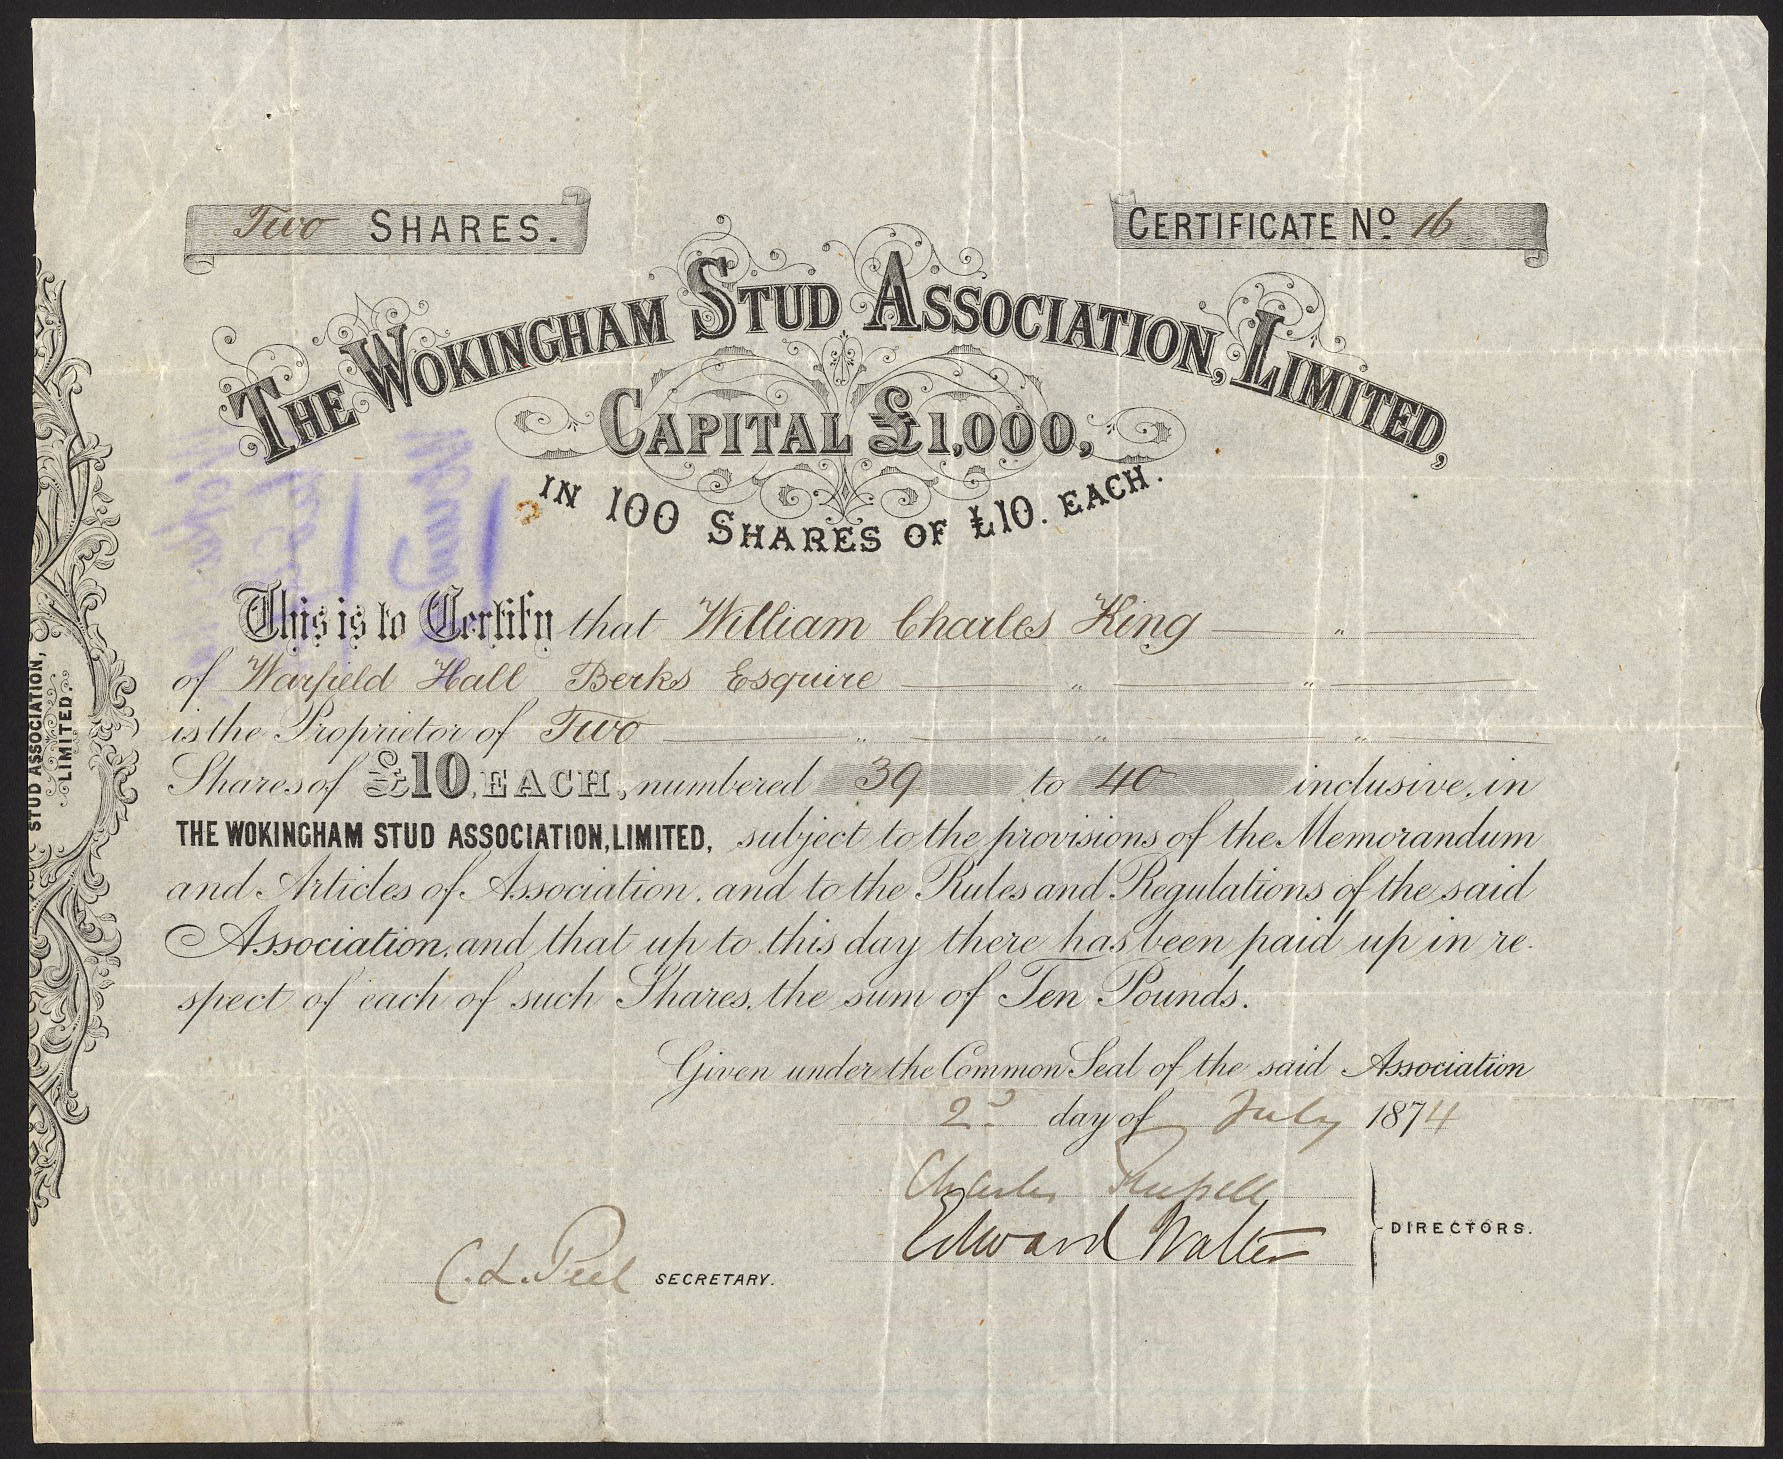 Two SHARES.
CERTIFICATE No 16
THE WOKINGHAM STUD ASSOCIATION, LIMITED,
CAPITAL £1,000,
IN 100 SHARES OF £10. EACH.
This is to Certify that William Charles King
of Warfield Hall Berks Esquire
is the Proprietor of Two
Shares of £10, EACH, numbered 39 to 40 inclusive, in
THE WOKINGHAM STUD ASSOCIATION, LIMITED, subject to the provisions of the Memorandum
and Articles of Association, and to the Rules and Regulations of the said
Association, and that up to this day there has been paid up in re-
spect of each of such Shares, the sum of Ten Pounds.
Given under the Common Seal of the said Association
2d day of July 1874
Charles Russell
Edward Walter
DIRECTORS.
C. L. Peel SECRETARY.
STUD ASSOCIATION,
LIMITED.